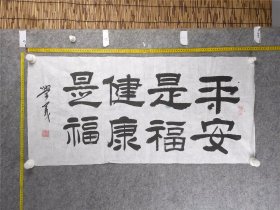 平安
是福
健康
是福